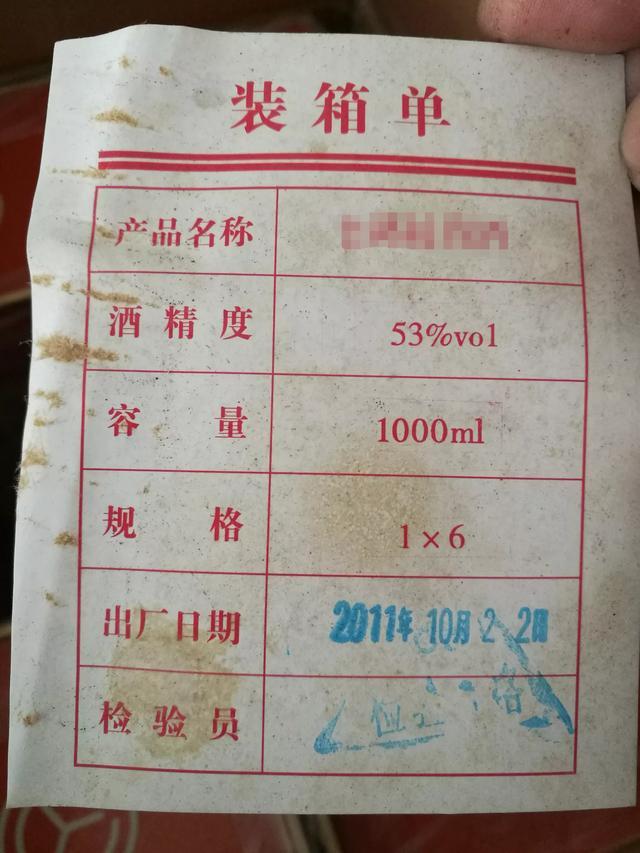 装箱单
产品名称
酒精度 53%vol
容量 1000ml
规格 1×6
出厂日期 2011年10月22日
检验员